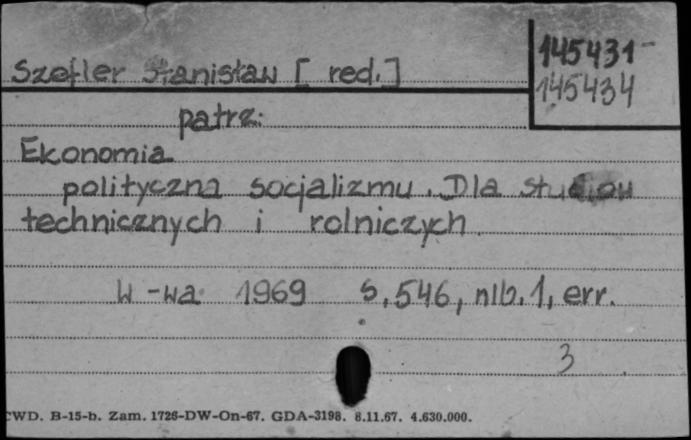 145431-
145434
Szefler Stanisław [ red.]
patrz:
Ekonomia
polityczna socjalizmu. Dla studiów
technicznych i rolniczych.
W-wa 1969 S. 546, nlb. 1, err.
3
CWD. B-15-b. Zam. 1726-DW-On-67. GDA-3198. 8.11.67. 4.630.000.